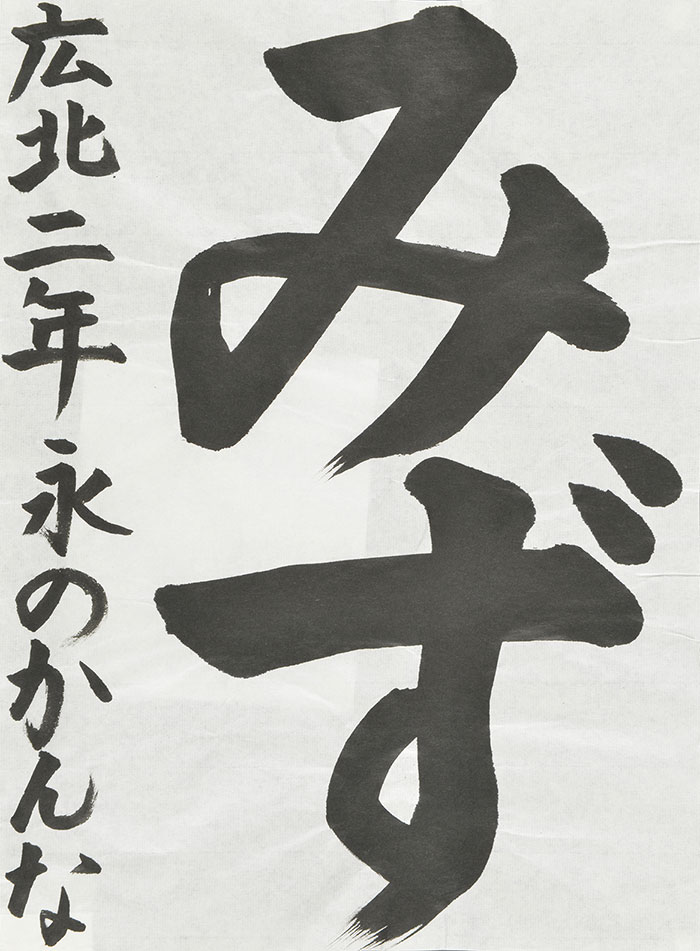 みず
広北二年永のかんな